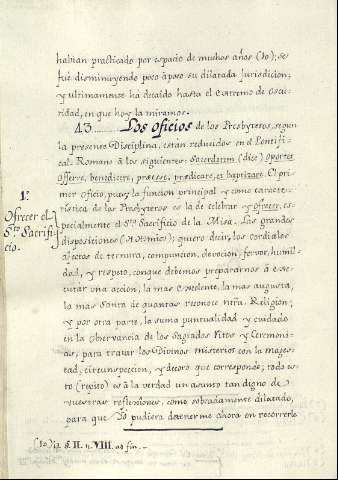 habian practicado por espacio de muchos años (10); se
fue disminuyendo poco à poco su dilatada Jurisdicion;
y ultimamente ha decaido hasta el extremo de oscu-
ridad, en que hoy la miramos.
43. Los oficios de los Presbyteros, segun
la presente Disciplina, estàn reducidos en el Pontifi-
cal Romano à los siguientes: Sacerdotem (dice) oportet
offerre, benedicere, præesse, prædicare, et baptizare. El pri-
mer oficio, pues, y la funcion principal y como caracte-
ristica de los Presbyteros es la de celebrar y ofrecer, es-
pecialmente el Sto Sacrificio de la Misa. Las grandes
disposiciones quiero decir, los cordiales
afectos de ternura, compuncion, devocion, fervor, humil-
dad, y respeto, conque debemos prepararnos à exe-
cutar una accion, la mas excelente, la mas augusta,
la mas Santa de quantas reconoce ntra. Religion;
y por otra parte, la suma puntualidad y cuidado
en la observancia de los Sagrados Ritos y Ceremoni-
as, para tratar los Divinos misterios con la mages-
tad, circunspeccion, y decoro que corresponde; todo es-
to (repito) es à la verdad un asunto tan digno de
vuestras reflexiones, como sobradamente dilatado,
para que Yo pudiera detenerme ahora en recorrerlo
1º
Ofrecer el
Sto Sacrifi-
cio.
(10) §. II. n. VIII. ad fin.